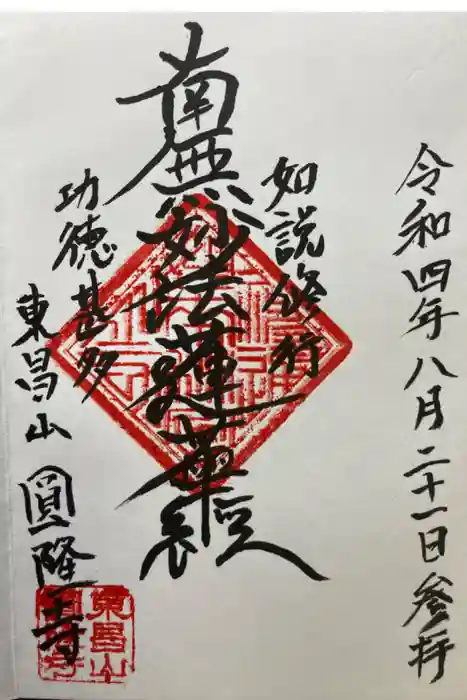 令和四年八月二十一日参拝
如説修行
南無妙法蓮華経
功徳甚多
東昌山 圓隆寺
東昌山
圓隆寺